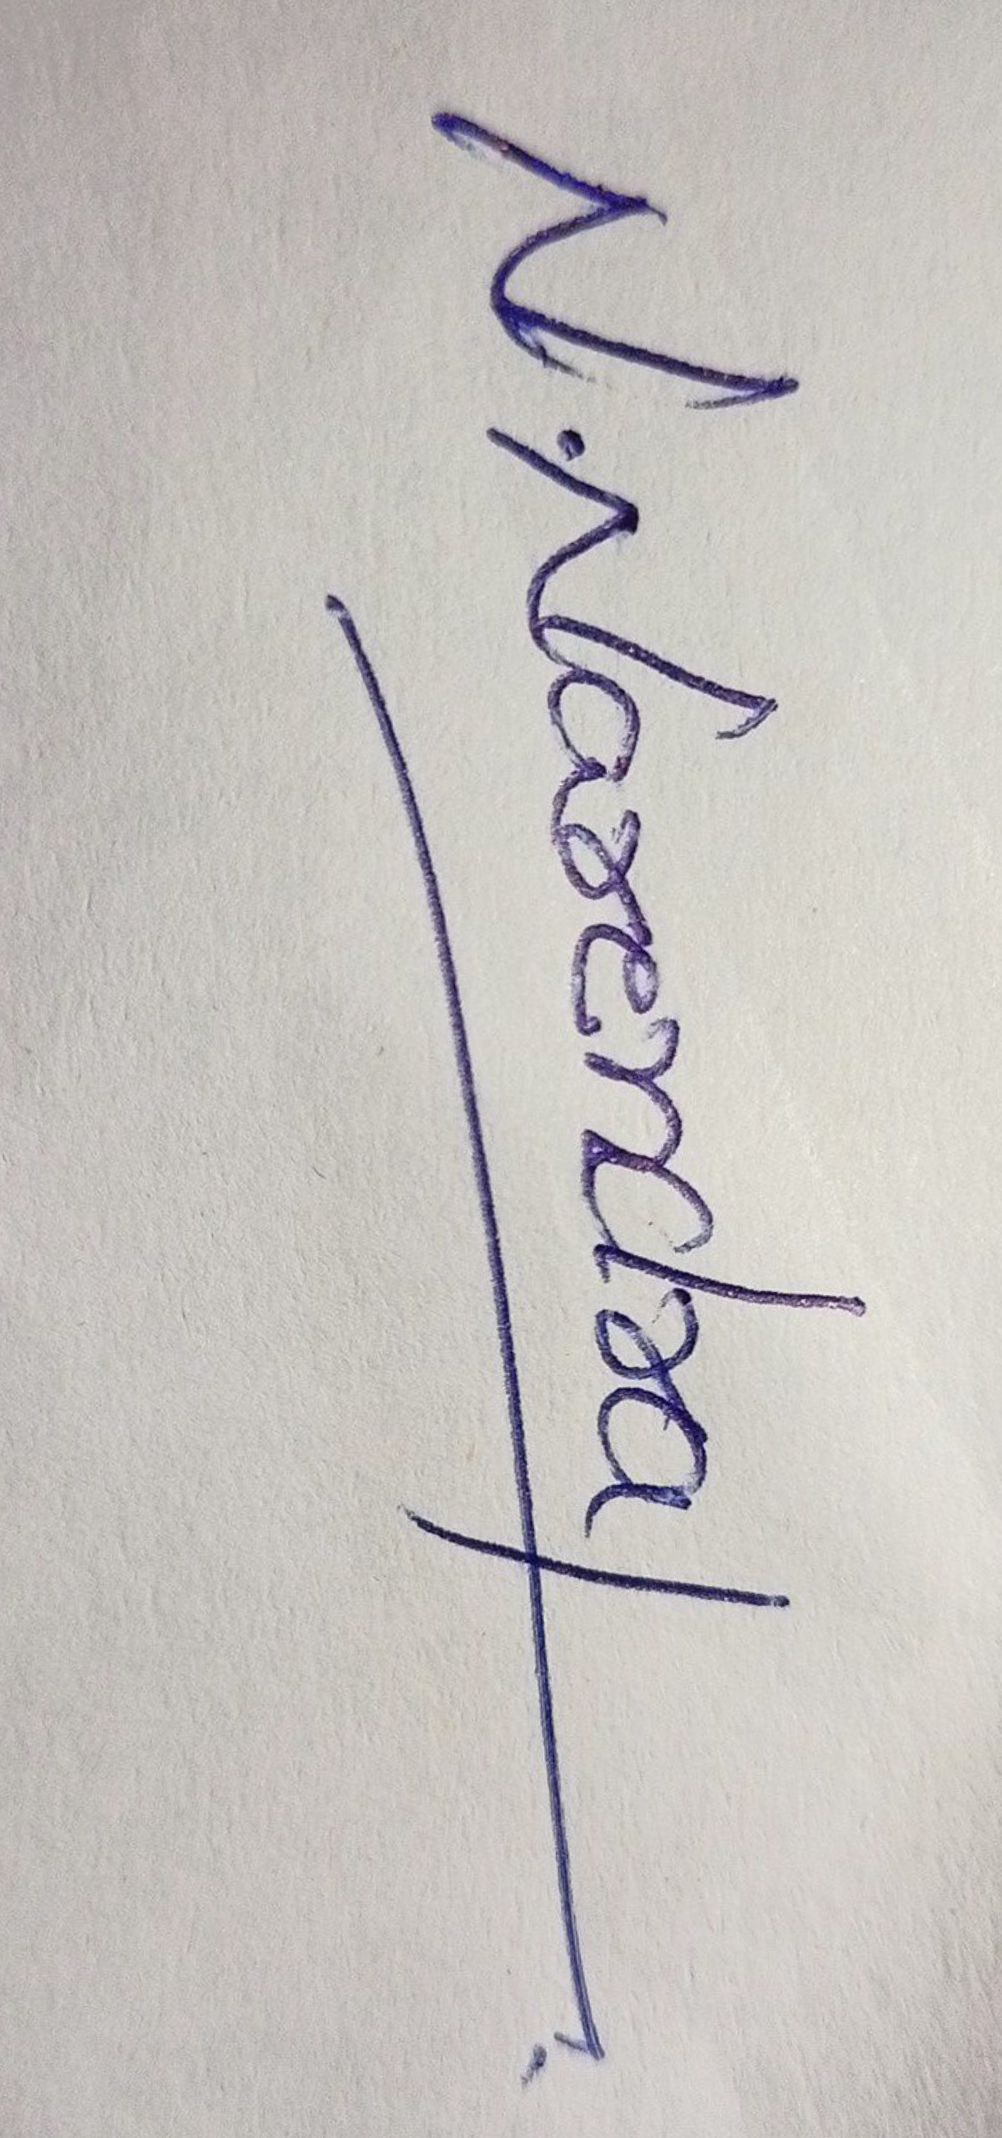 N. Narendra